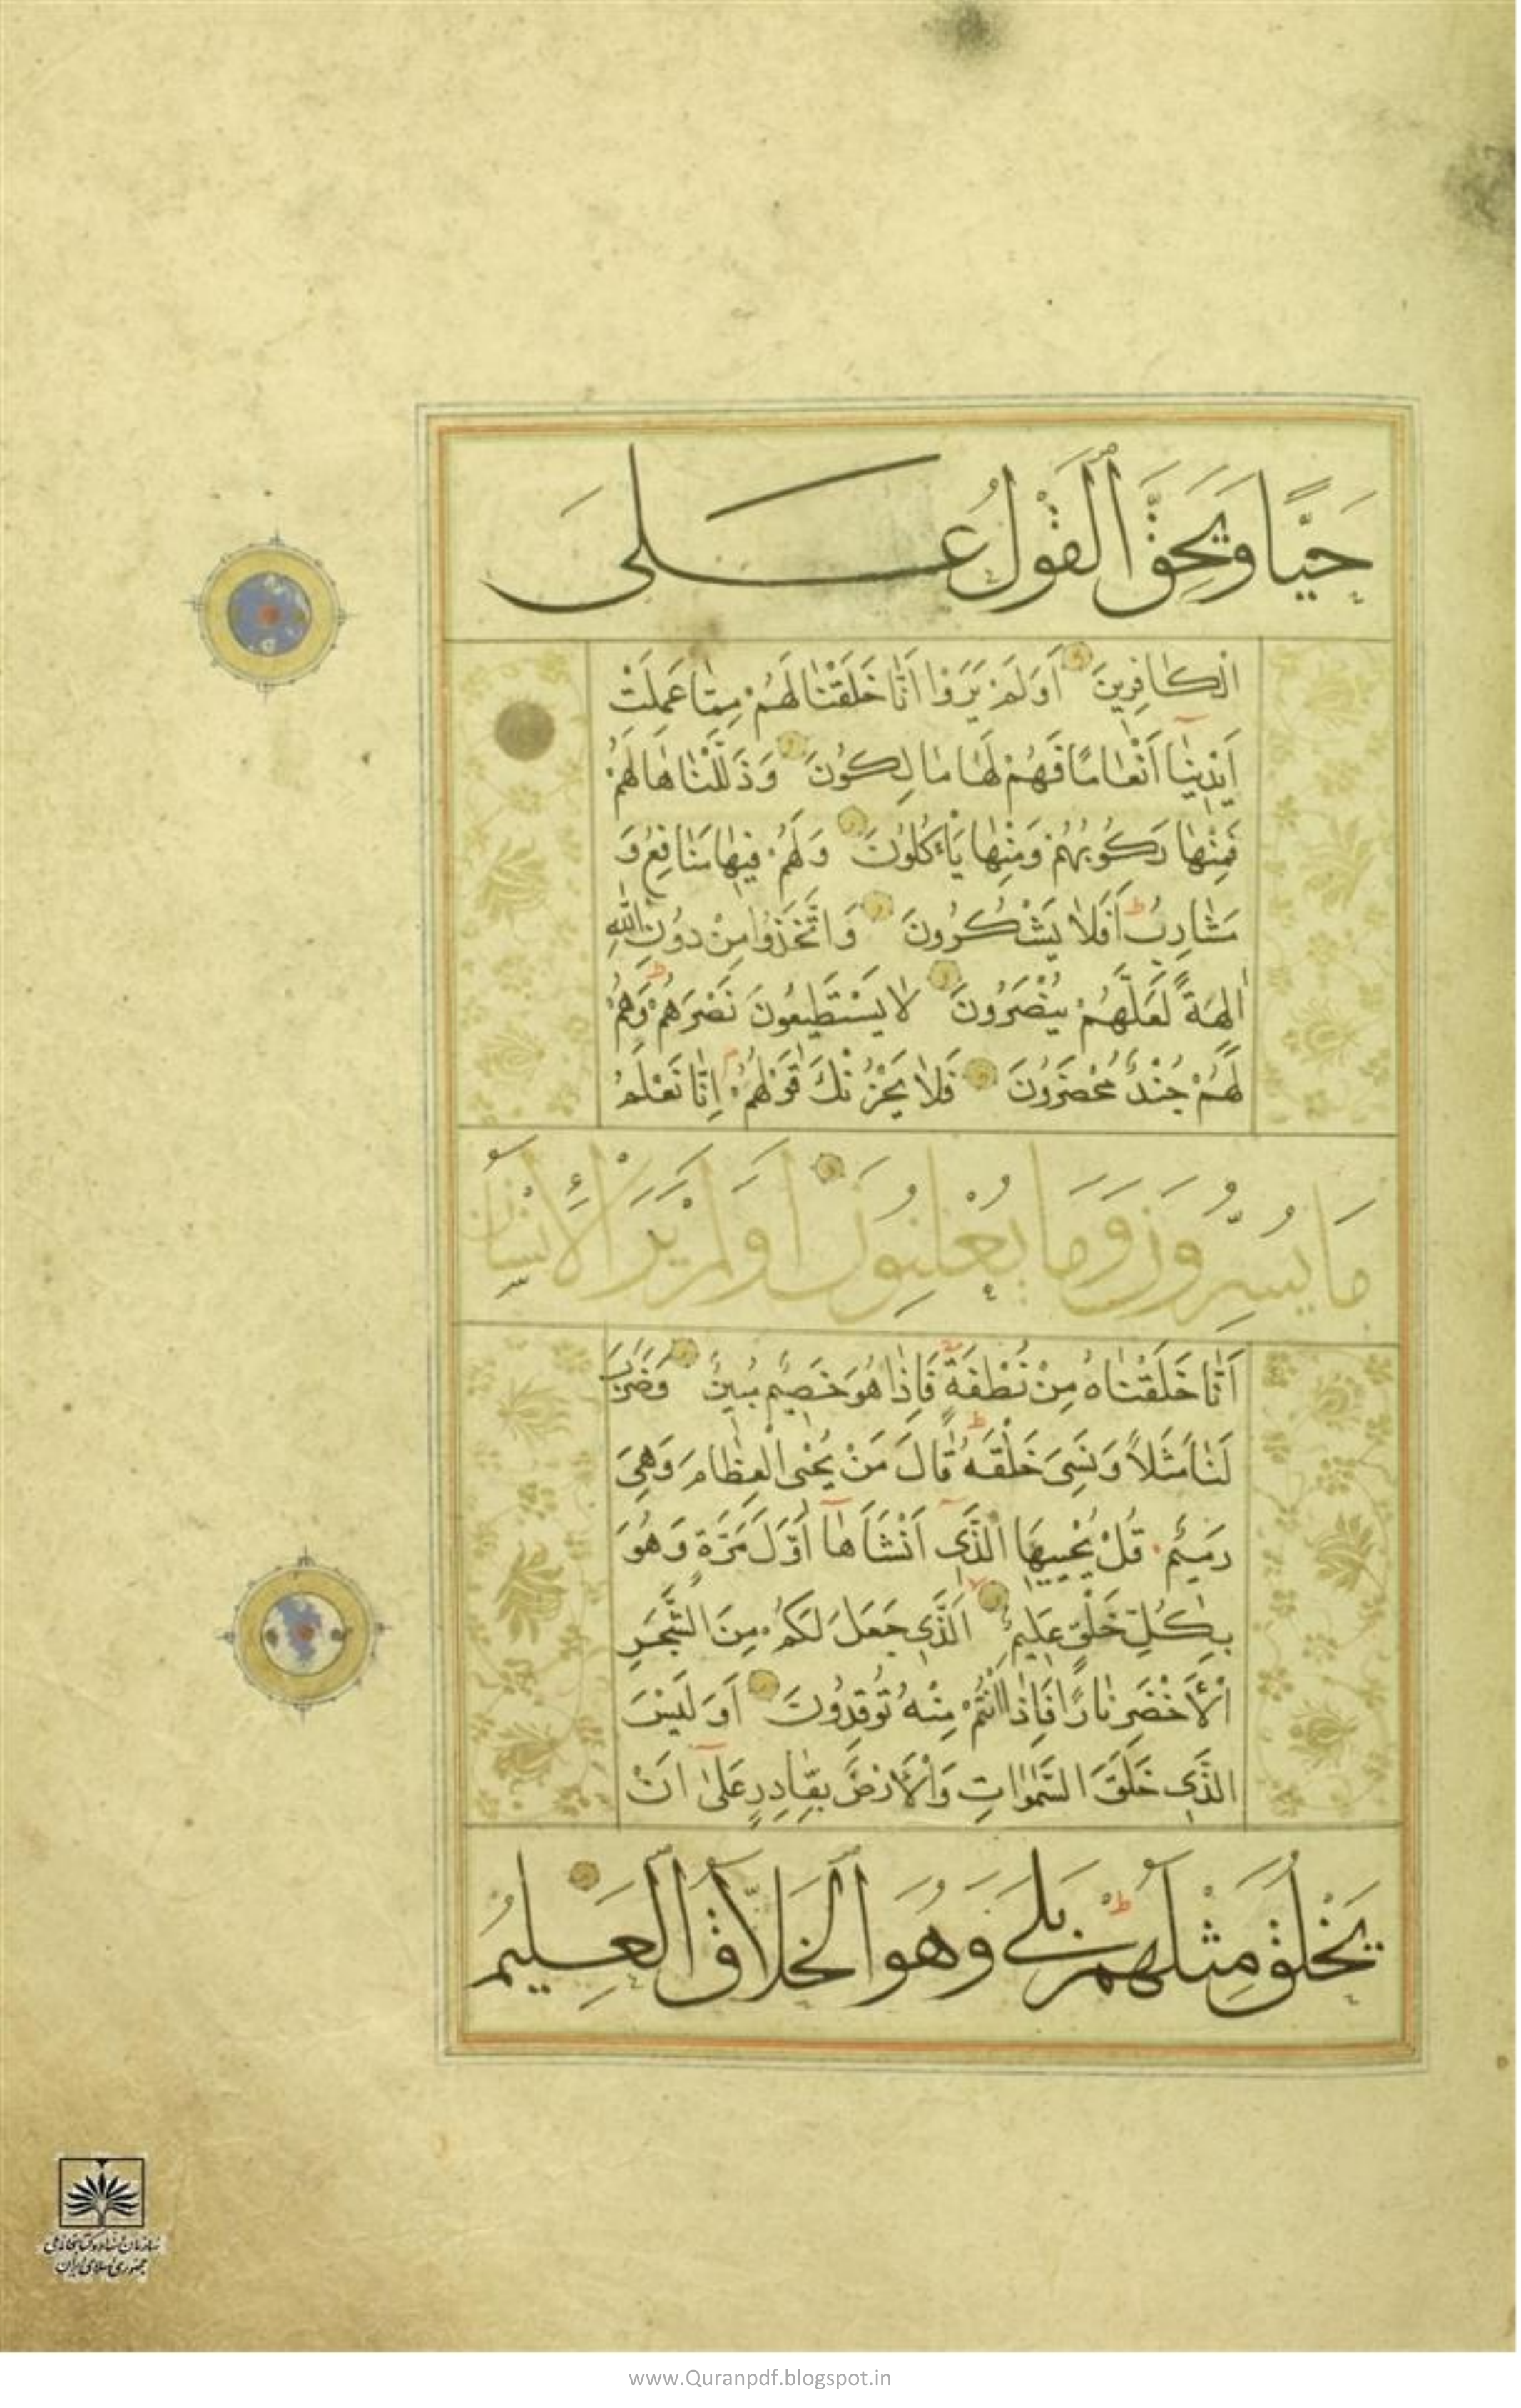 حَيًّا وَيَحِقَّ ٱلْقَوْلُ عَلَى
الْكَافِرِينَ أَوَلَمْ يَرَوْا أَنَّا خَلَقْنَا لَهُمْ مِمَّا عَمِلَتْ
اَيْدِينَا اَنْعَامًا فَهُمْ لَهَا مَالِكُونَ وَذَلَّلْنَاهَا لَهُمْ
فَمِنْهَا رَكُوبُهُمْ وَمِنْهَا يَأْكُلُونَ وَلَهُمْ فِيهَا مَنَافِعُ وَ
مَشَارِبُ اَفَلَا يَشْكُرُونَ وَاتَّخَذُوا مِنْ دُونِ اللَّهِ
اٰلِهَةً لَعَلَّهُمْ يُنْصَرُونَ لَا يَسْتَطِيعُونَ نَصْرَهُمْ وَهُمْ
لَهُمْ جُنْدٌ مُحْضَرُونَ فَلَا يَحْزُنْكَ قَوْلُهُمْ اِنَّا نَعْلَمُ
مَا يُسِرُّونَ وَمَا يُعْلِنُونَ أَوَلَمْ يَرَ الْإِنْسَانُ
اَنَّا خَلَقْنَاهُ مِنْ نُطْفَةٍ فَاِذَا هُوَ خَصِيمٌ مُبِينٌ وَضَرَبَ
لَنَا مَثَلًا وَنَسِيَ خَلْقَهُ قَالَ مَنْ يُحْيِي الْعِظَامَ وَهِيَ
رَمِيمٌ قُلْ يُحْيِيهَا الَّذِي اَنْشَأَهَا اَوَّلَ مَرَّةٍ وَهُوَ
بِكُلِّ خَلْقٍ عَلِيمٌ اَلَّذِي جَعَلَ لَكُمْ مِنَ الشَّجَرِ
الْأَخْضَرِ نَارًا فَاِذَا اَنْتُمْ مِنْهُ تُوقِدُونَ اَوَلَيْسَ
الَّذِي خَلَقَ السَّمٰوَاتِ وَالْأَرْضَ بِقَادِرٍ عَلٰى اَنْ
يَخْلُقَ مِثْلَهُمْ بَلَى وَهُوَ الْخَلَّاقُ الْعَلِيمُ
سازمان اسناد و کتابخانه ملی
جمهوری اسلامی ایران
www.Quranpdf.blogspot.in